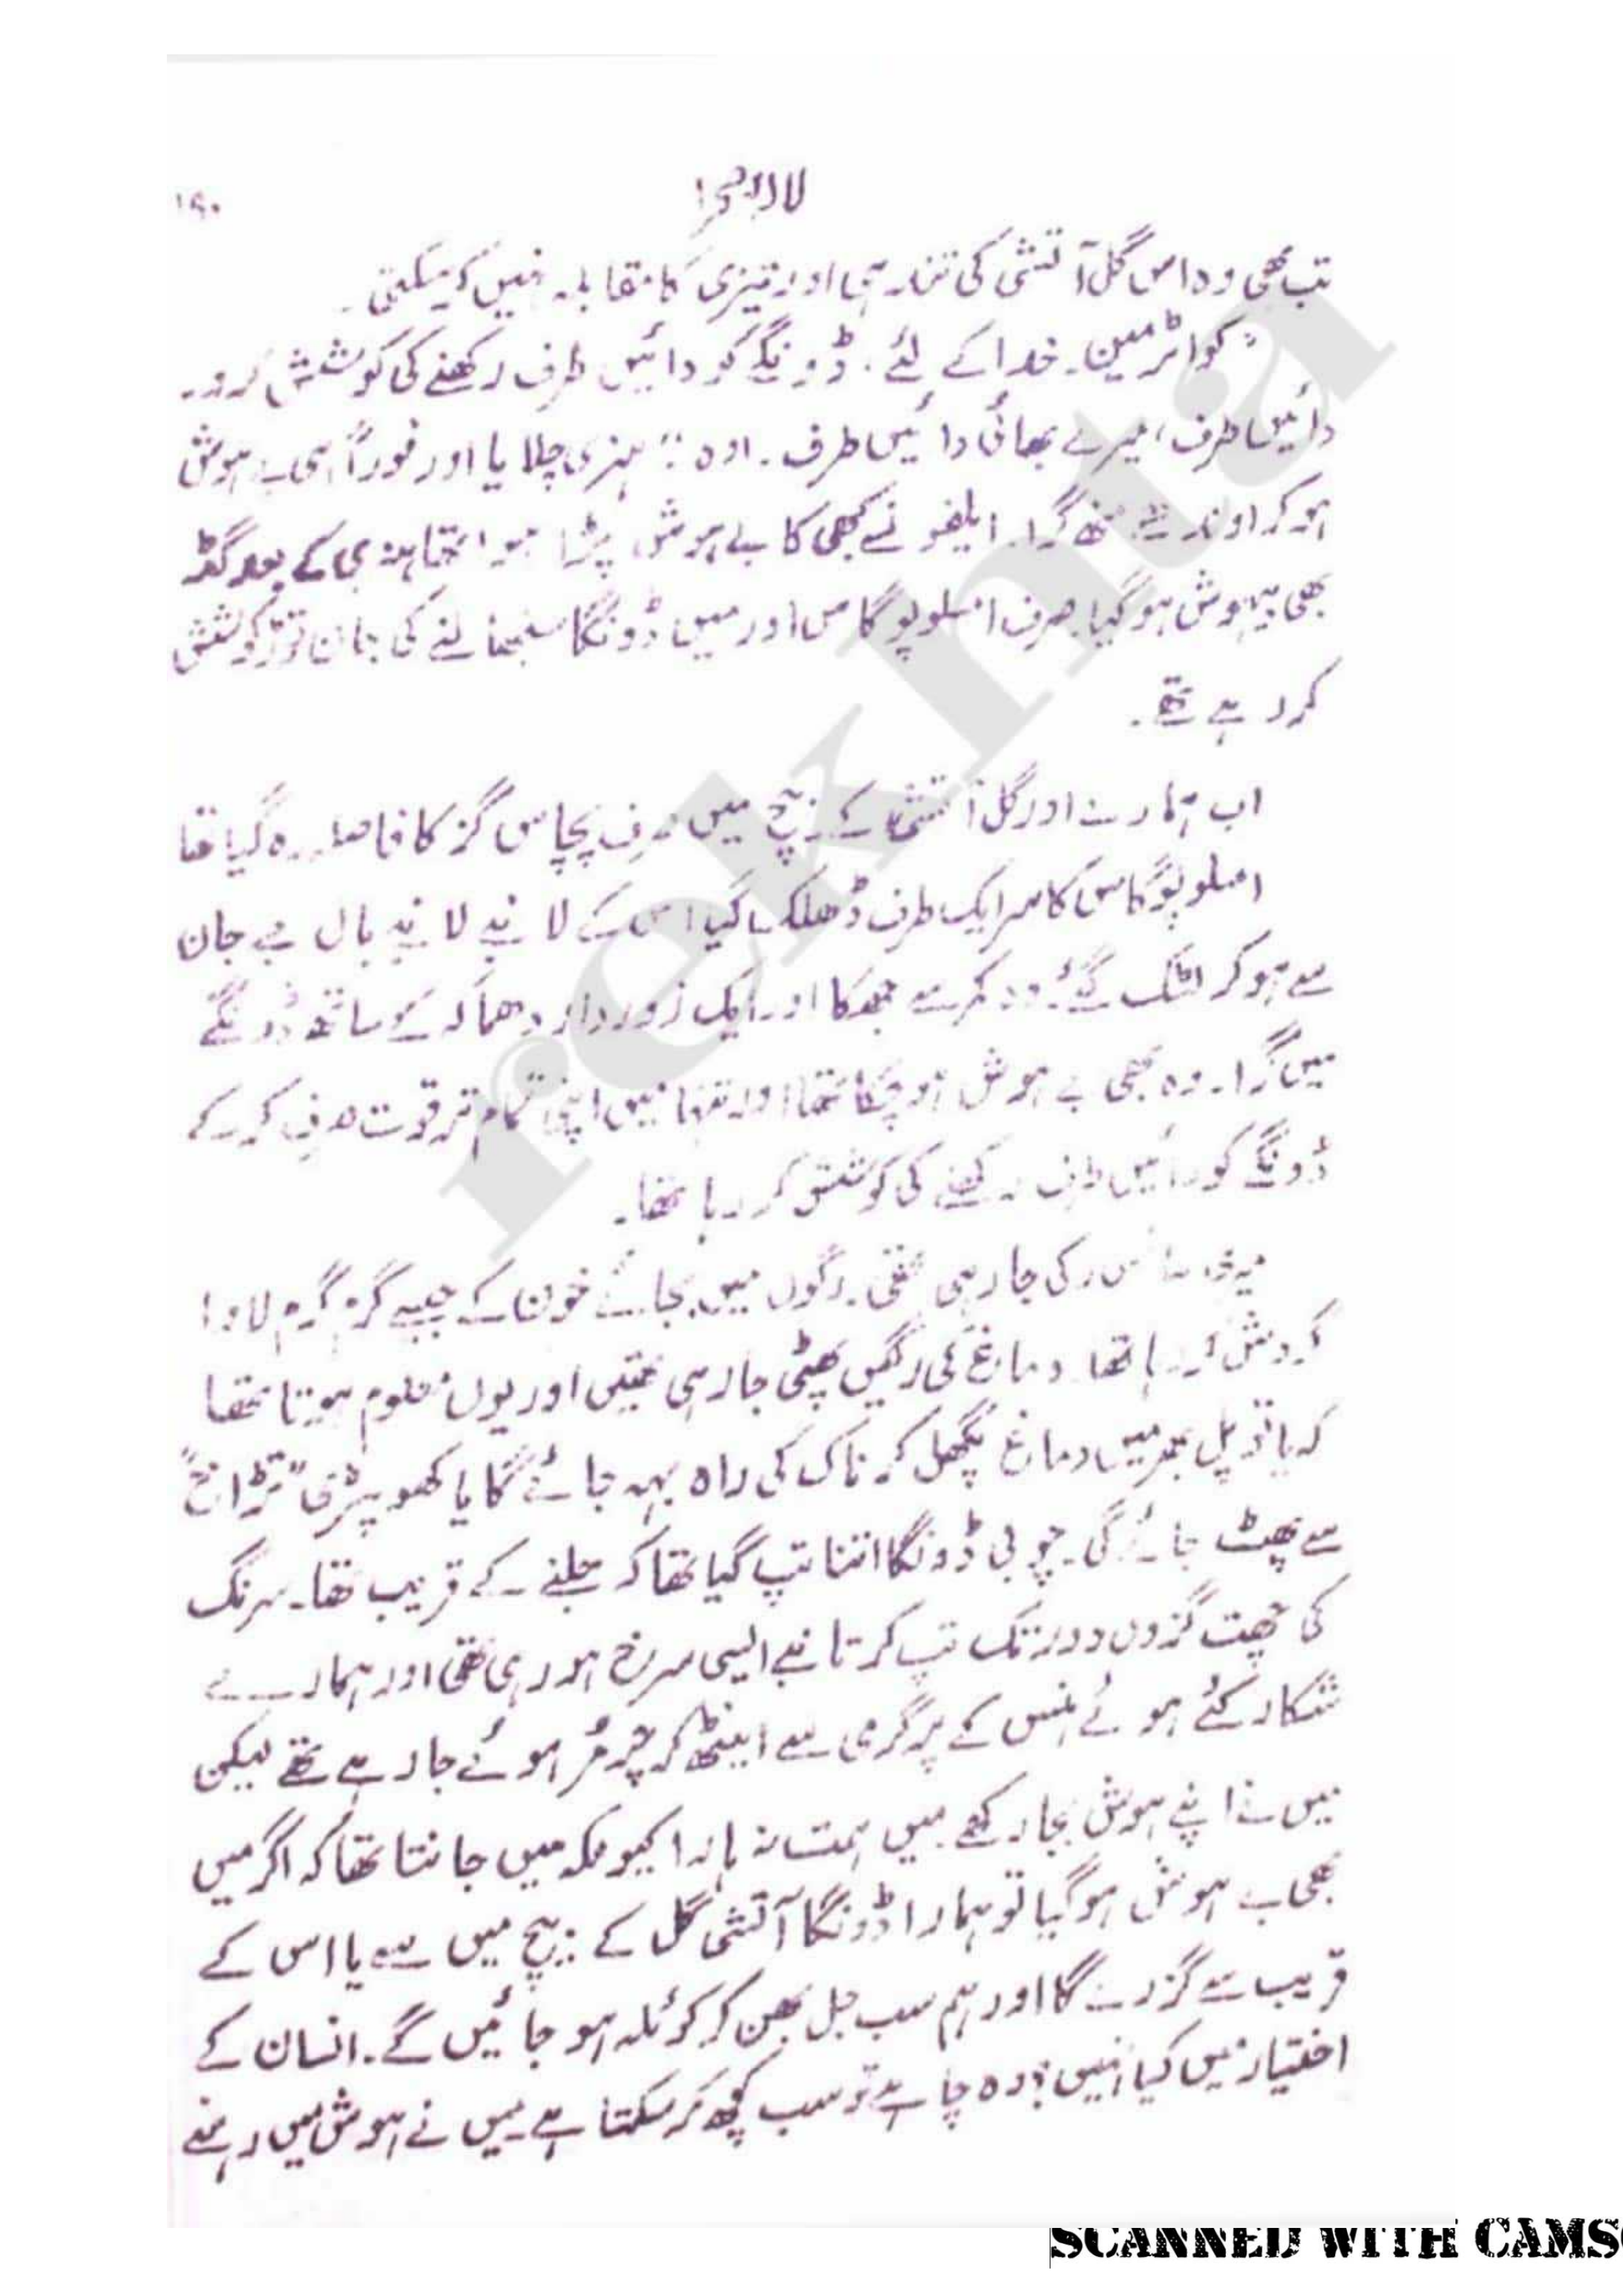 لالہ صحرا
۱۹۰
تب بھی وہ اس گل آتشی کی تندہی اور تیزی کا مقابلہ نہیں کر سکتی ۔
"کواٹرمین ۔ خدا کے لئے ۔ ڈونگے کو دائیں طرف رکھنے کی کوشش کرو ۔
دائیں طرف ، میرے بھائی دائیں طرف ۔ اوہ " ہنری چلایا اور فوراً ہی بے ہوش
ہو کر اوندھے منھ گرا ۔ ایلفونسے کبھی کا بے ہوش پڑا ہوا تھا ہنری کے بعد گڈ
بھی بیہوش ہو گیا ۔ صرف امسلوپوگاس اور میں ڈونگا سنبھالنے کی جان توڑ کوشش
کر رہے تھے ۔
اب ہمارے اور گل آتشی کے بیچ میں صرف پچاس گز کا فاصلہ رہ گیا تھا
امسلوپوگاس کا سر ایک طرف ڈھلک گیا اس کے لانبے لانبے بال بے جان
سے ہو کر لٹک گئے ۔ وہ کمر سے جھکا اور ایک زوردار دھماکہ کے ساتھ ڈونگے
میں گرا ۔ وہ بھی بے ہوش ہو چکا تھا اور تنہا میں اپنی تمام تر قوت صرف کر کے
ڈونگے کو دائیں طرف رکھنے کی کوشش کر رہا تھا ۔
میری سانس رکی جا رہی تھی ۔ رگوں میں بجائے خون کے جیسے گرم گرم لاوا
گردش کر رہا تھا دماغ کی رگیں پھٹی جا رہی تھیں اور یوں معلوم ہوتا تھا
کہ یا تو پل بھر میں دماغ پگھل کر ناک کی راہ بہہ جائے گا یا کھوپڑی "تڑاخ"
سے پھٹ جائے گی ۔ چوبی ڈونگا اتنا تپ گیا تھا کہ جلنے کے قریب تھا ۔ سرنگ
کی چھت گزوں دور تک تپ کر تانبے ایسی سرخ ہو رہی تھی اور ہمارے
شکار کئے ہوئے ہنس کے پر گرمی سے اینٹھ کر چُر مُر ہوئے جا رہے تھے لیکن
میں نے اپنے ہوش بجا رکھے میں ہمت نہ ہارا کیونکہ میں جانتا تھا کہ اگر میں
بھی بے ہوش ہو گیا تو ہمارا ڈونگا آتشی گل کے بیچ میں سے یا اس کے
قریب سے گزرے گا اور ہم سب جل بھن کر کوئلہ ہو جائیں گے ۔ انسان کے
اختیار میں کیا نہیں ؟ وہ چاہے تو سب کچھ کر سکتا ہے میں نے ہوش میں رہنے
rekhta
SCANNED WITH CAMS